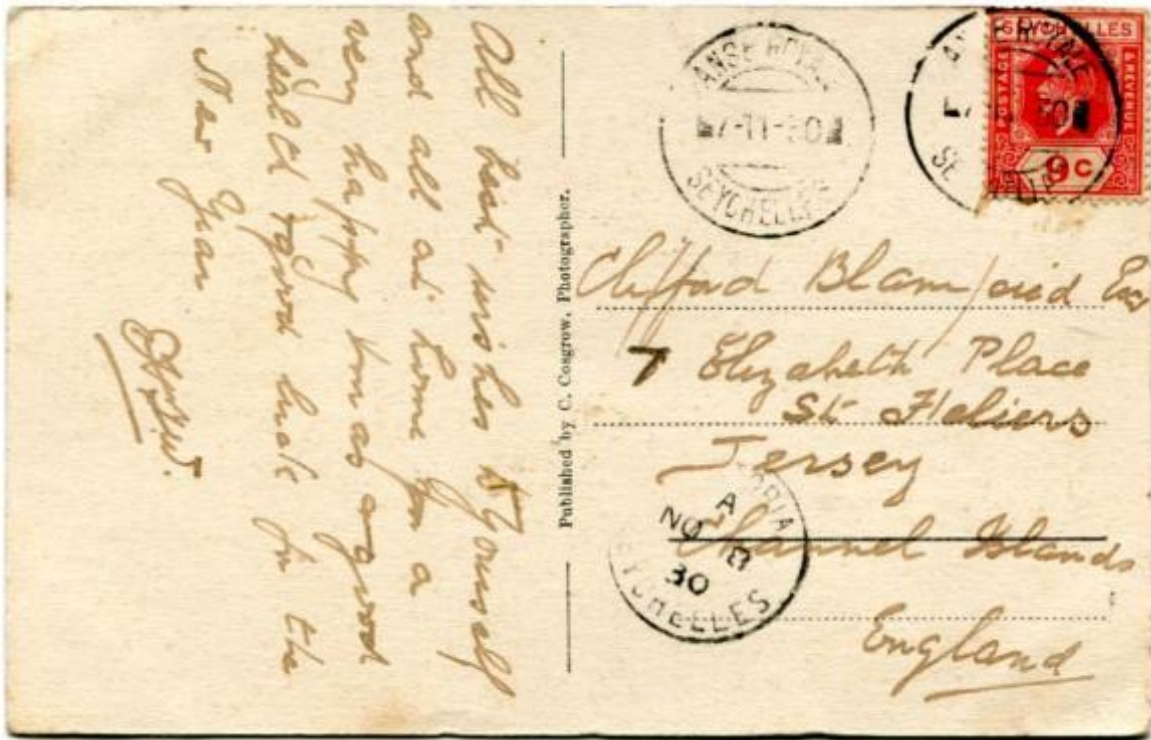 All best wishes to Yourself
and all at home for a
very happy Xmas & good
health & good luck in the
New Year
Published by C. Cosgrow, Photographer.
ANSE ROYALE
7-11-30
SEYCHELLES
ANSE ROYALE
SEYCHELLES
SEYCHELLES
POSTAGE
& REVENUE
9c
Clifford Blampied Esq
7 Elizabeth Place
St Heliers
Jersey
Channel Islands
England
VICTORIA
A
NO 8
30
SEYCHELLES